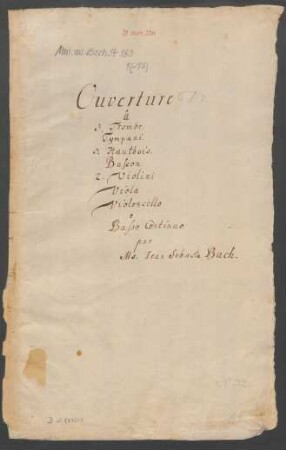 Mus. ms. Bach St 153
Ouverture
à
3. Trombe.
Tympani.
3. Hautbois.
Basson.
2. Violini
Viola
Violoncello
e
Basso Continuo
par
Mr. Jean Sebast. Bach.